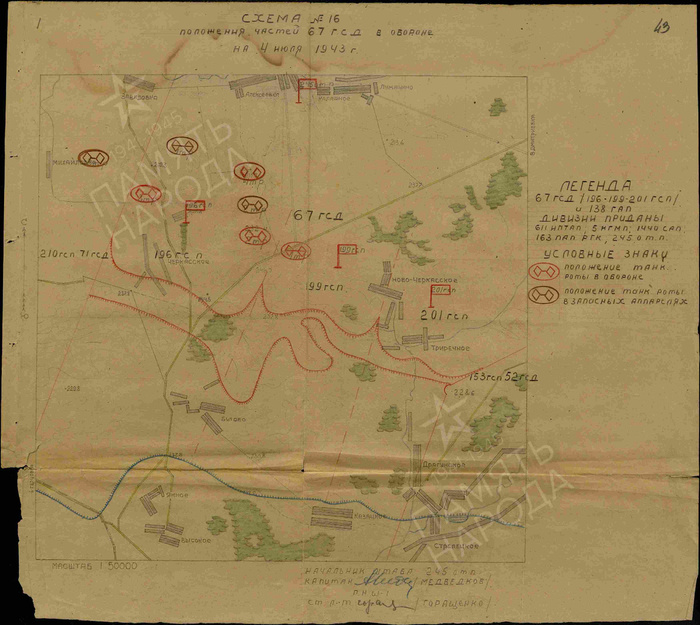 1
43
СХЕМА №16
ПОЛОЖЕНИЯ ЧАСТЕЙ 67 ГСД В ОБОРОНЕ
НА 4 ИЮЛЯ 1943 Г.
67 ГСД
210 ГСП 71 ГСД
196 ГСП
ЧЕРКАССКОЕ
199 ГСП
НОВО-ЧЕРКАССКОЕ
201 ГСП
201 ГСП
ТРИРЕЧНОЕ
153 ГСП 52 ГСД
БУТОВО
ДРАГУНСКОЕ
КАЗАЦКОЕ
СТРЕЛЕЦКОЕ
МАСШТАБ 1:50000
ЛЕГЕНДА
67 ГСД /196-199-201 ГСП/
И 138 ГАП
ДИВИЗИИ ПРИДАНЫ
611 ИПТАП, 5 КГМП, 1440 САП,
163 ПАП РГК, 245 О.Т.П.
УСЛОВНЫЕ ЗНАКИ
ПОЛОЖЕНИЕ ТАНК.
РОТЫ В ОБОРОНЕ
ПОЛОЖЕНИЕ ТАНК. РОТЫ
В ЗАПАСНЫХ АППАРЕЛЯХ
НАЧАЛЬНИК ШТАБА 245 О.Т.П.
КАПИТАН /МЕДВЕДКОВ/
СТ. Л-Т /ТОРАЩЕНКО/
1941-1945
ПАМЯТЬ
НАРОДА
ПАМЯТЬ
НАРОДА